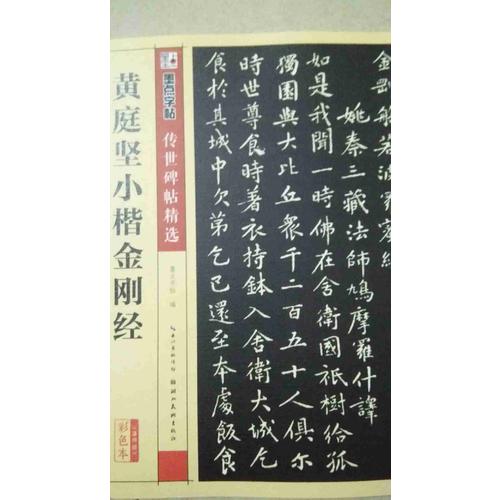 黄庭坚小楷金刚经
墨点字帖
传世碑帖精选
墨点字帖 编
长江出版传媒
湖北美术出版社
彩色本
金剛般若波羅蜜經
姚秦三藏法師鳩摩羅什譯
如是我聞一時佛在舍衛國祇樹給孤
獨園與大比丘衆千二百五十人俱尔
時世尊食時著衣持鉢入舍衛大城乞
食於其城中次第乞已還至本處飯食